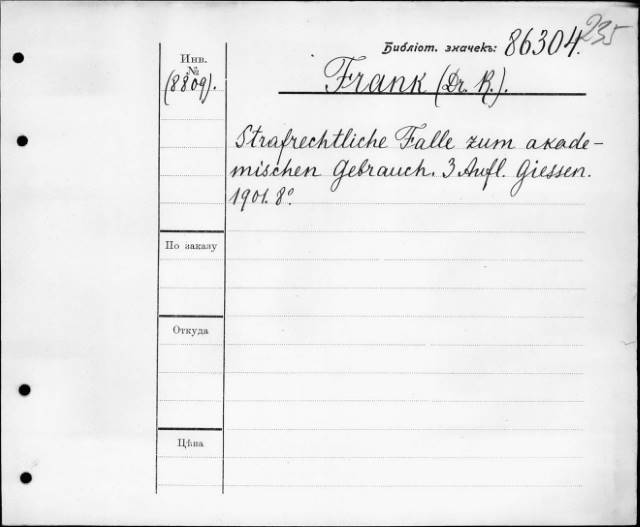 235
Библіот. значекъ: 86304.
Инв.
№
(8809).
Frank (Dr. R.).
Strafrechtliche Falle zum akade-
mischen Gebrauch. 3 Aufl. Giessen.
1901. 8°.
По заказу
Откуда
Цѣна